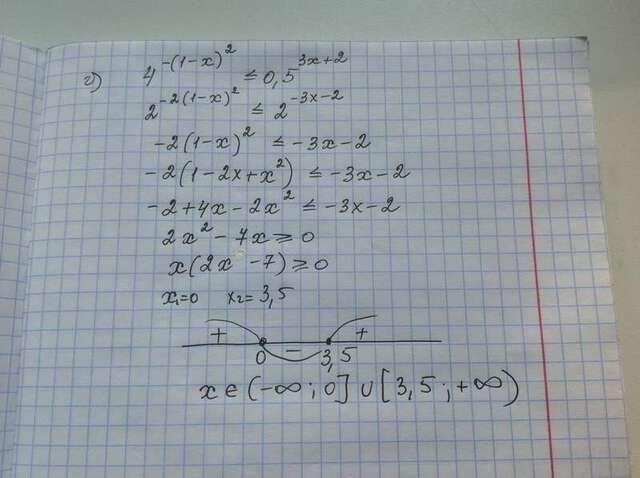 г) 4^{-(1-x)^2} ≤ 0,5^{3x+2}
2^{-2(1-x)^2} ≤ 2^{-3x-2}
-2(1-x)^2 ≤ -3x-2
-2(1-2x+x^2) ≤ -3x-2
-2+4x-2x^2 ≤ -3x-2
2x^2-7x≥0
x(2x-7)≥0
x₁=0 x₂=3,5
+ - +
0 3,5
x∈(-∞;0]∪[3,5;+∞)